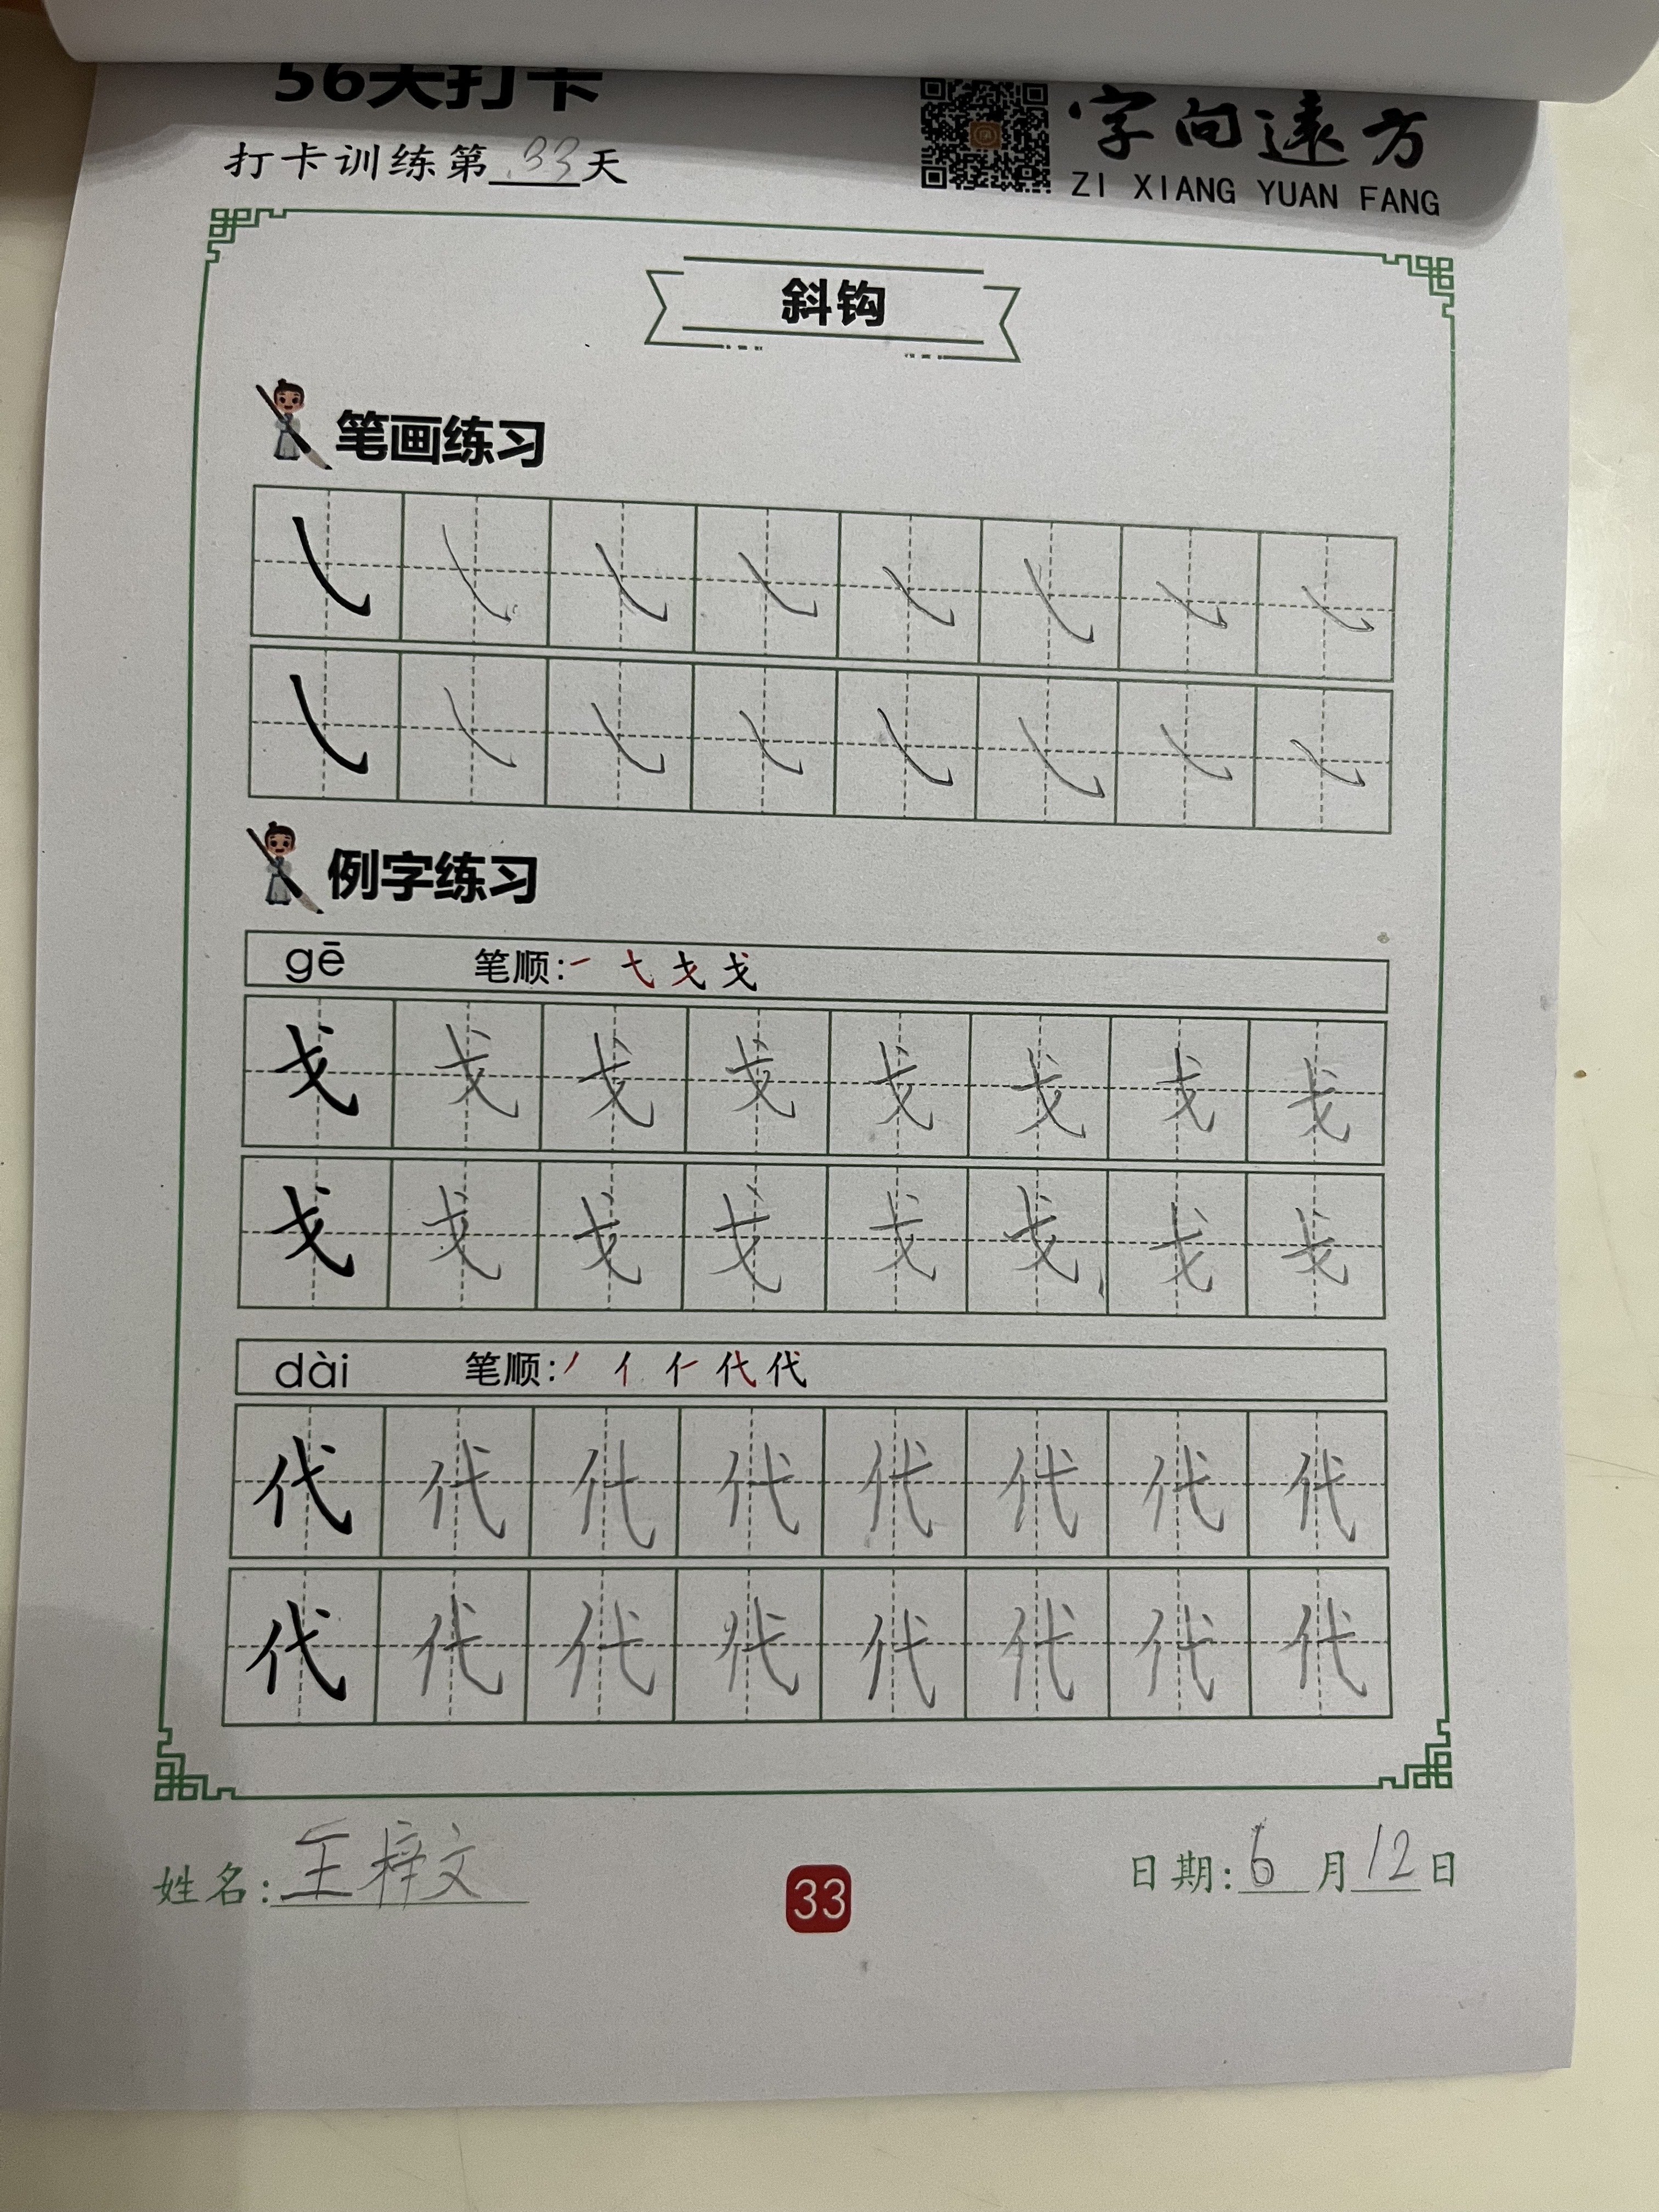 56天打卡
字向遠方
打卡训练第33天
ZI XIANG YUAN FANG
斜钩
笔画练习
例字练习
gē 笔顺:一 弋 戈 戈
戈 戈 戈 戈 戈 戈 戈 戈
戈 戈 戈 戈 戈 戈 戈 戈
dài 笔顺:丿 亻 仁 代 代
代 代 代 代 代 代 代 代
代 代 代 代 代 代 代 代
姓名:王梓文
33
日期:6月12日